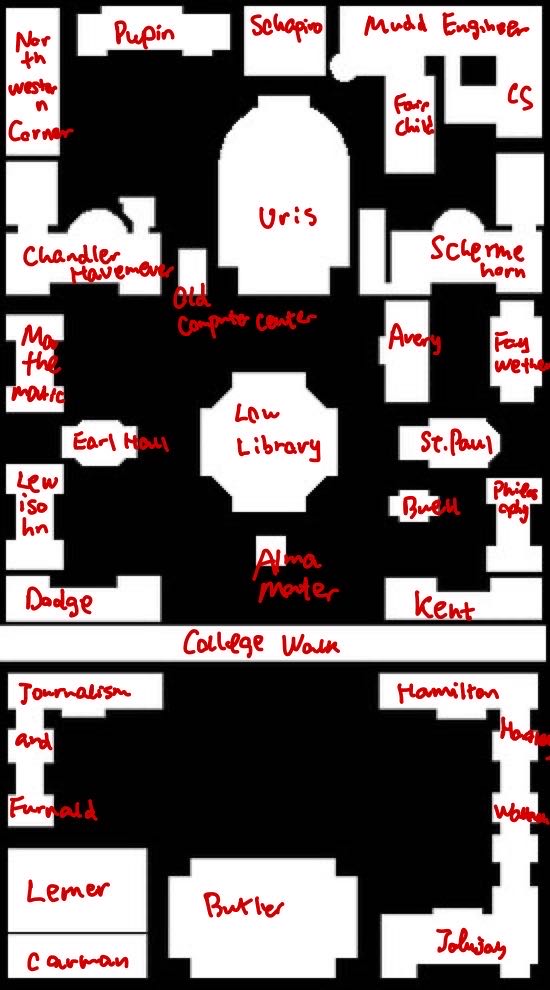 Nor
th
wester
n
Corner
Pupin
Schapiro
Mudd Engineer
Fair
child
CS
Uris
Chandler
Havemeyer
Old
Computer Center
Scherme
horn
Avery
Fay
wethe
Ma
the
matic
Earl Hall
Low
Library
St.Paul
Lew
iso
hn
Buell
Philos
ophy
Alma
Mater
Dodge
Kent
College Walk
Journalism
and
Furnald
Hamilton
Lerner
Carman
Butler